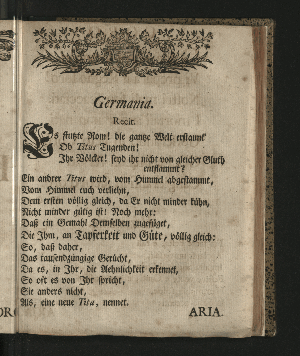 Germania.
Recit.
Es stutzte Rom! die gantze Welt erstaunt'
Ob Titus Tugenden!
Ihr Völcker! seyd ihr nicht von gleicher Gluth
entflammt?
Ein andrer Titus wird, vom Himmel abgestammt,
Vom Himmel euch verliehn,
Dem ersten völlig gleich, da Er nicht minder kühn,
Nicht minder gütig ist! Noch mehr:
Daß ein Gemahl Demselben zugefüget,
Die Ihm, an Tapferkeit und Güte, völlig gleich:
So, daß daher,
Das tausendzüngige Gerücht,
Da es, in Ihr, die Aehnlichkeit erkennet,
So oft es von Ihr spricht,
Sie anders nicht,
Als, eine neue Tita, nennet.
ARIA.